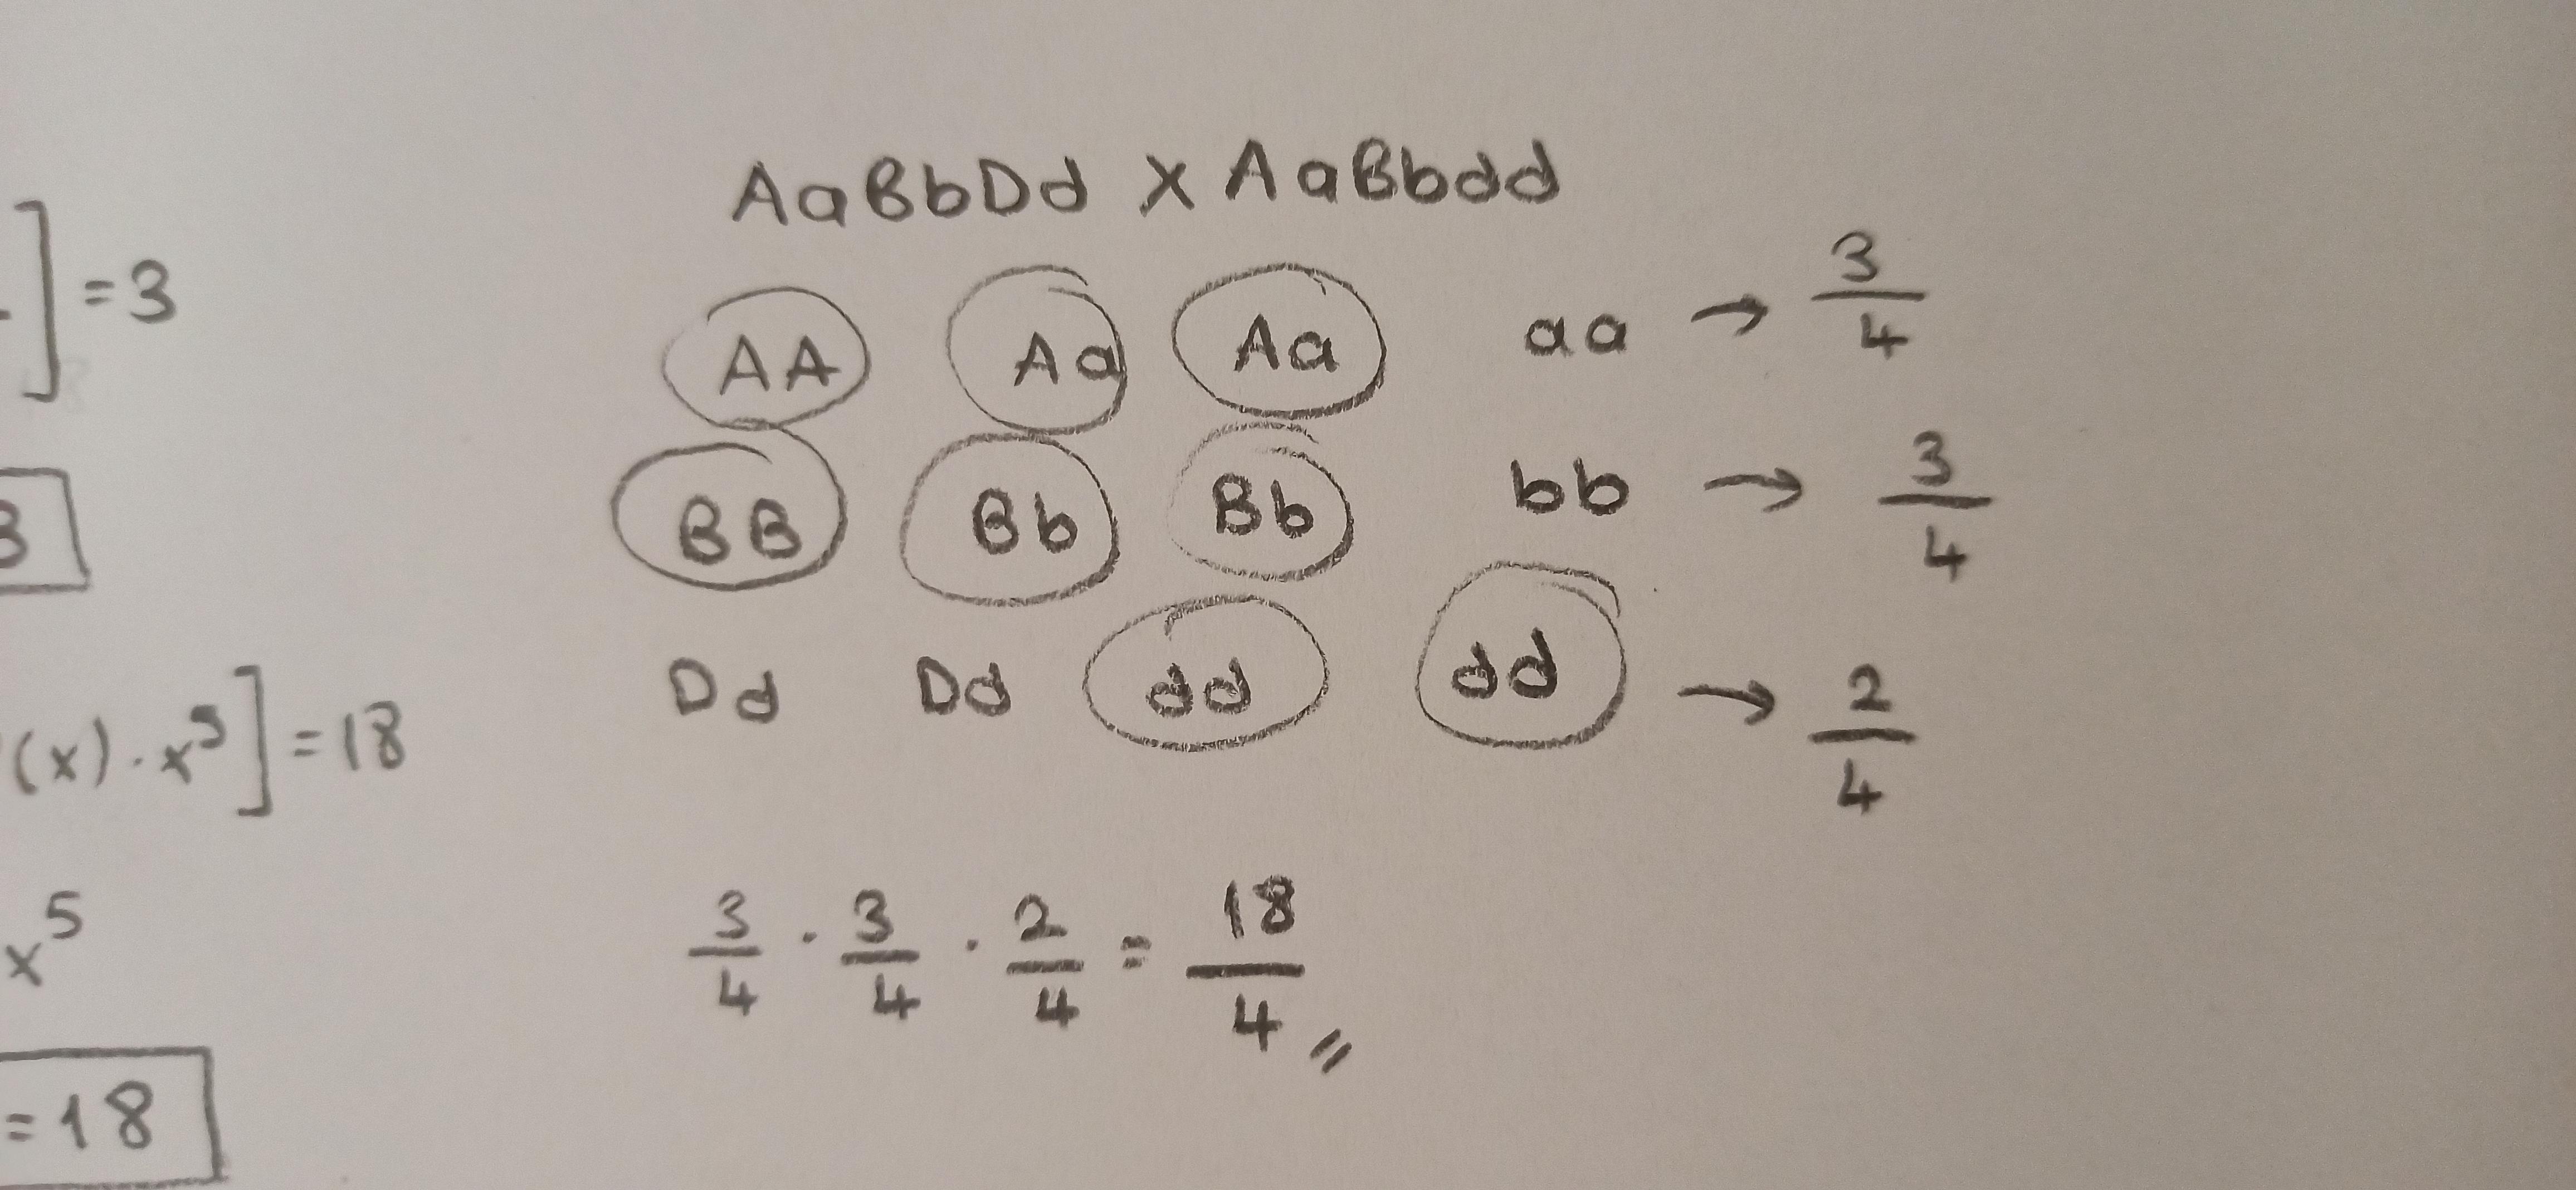 ] = 3
3
(x) · x³] = 18
x⁵
= 18
AaBbDd x AaBbdd
AA Aa Aa aa → 3/4
BB Bb Bb bb → 3/4
Dd Dd dd dd → 2/4
3/4 · 3/4 · 2/4 = 18/4 //